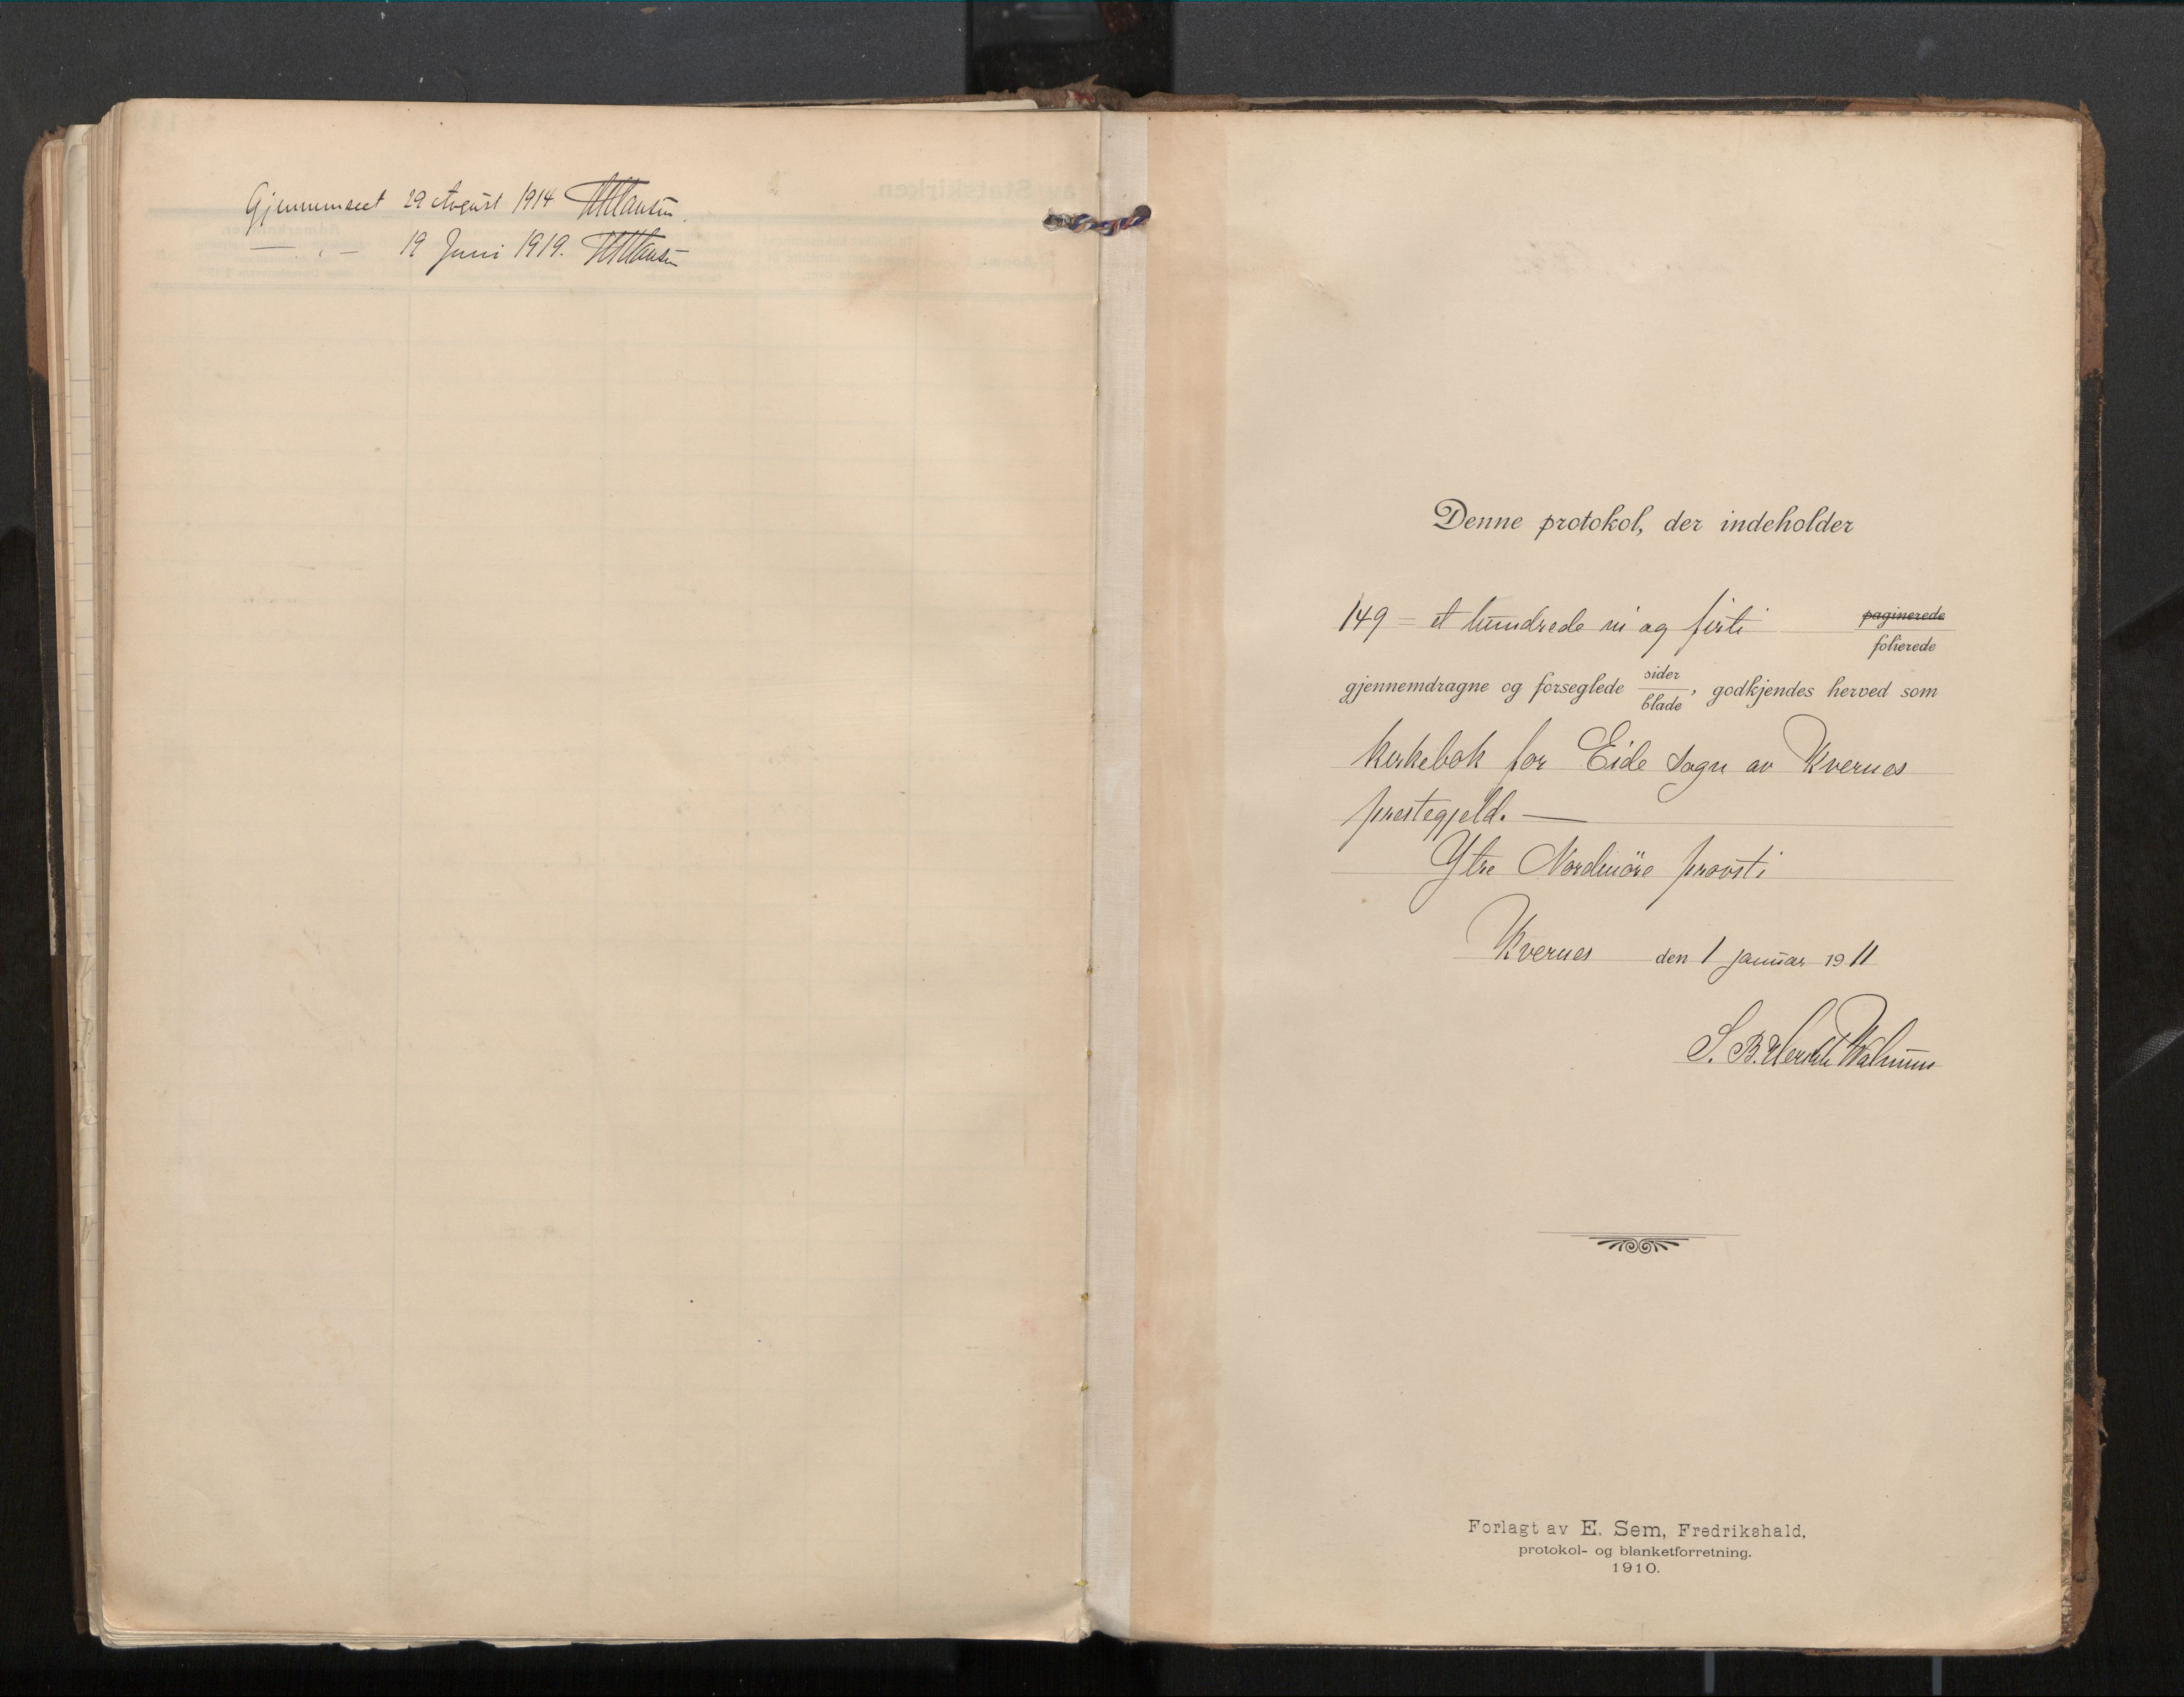 Gjennemseet 29 August 1914 HHansen.
— " — 19 Juni 1919. HHansen
Denne protokol, der indeholder
149 = et hundrede ni og firti paginerede
folierede
gjennemdragne og forseglede sider blade, godkjendes herved som
kirkebok for Eide sogn av Kvernes
prestegjeld. —
Ytre Nordmöre provsti
Kvernes den 1 januar 1911
S. B.
Forlagt av E. Sem, Fredrikshald,
protokol- og blanketforretning.
1910.